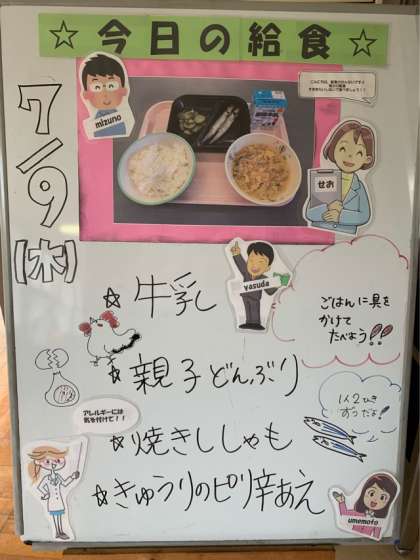 ☆今日の給食☆
7/9(木)
mizuno
せお
yasuda
☆牛乳
ごはんに具を
かけて
たべよう!!
☆親子どんぶり
1人2ひき
ずつだよ!
アレルギーには
気を付けて!!
☆焼きししゃも
☆きゅうりのピリ辛あえ
umemoto